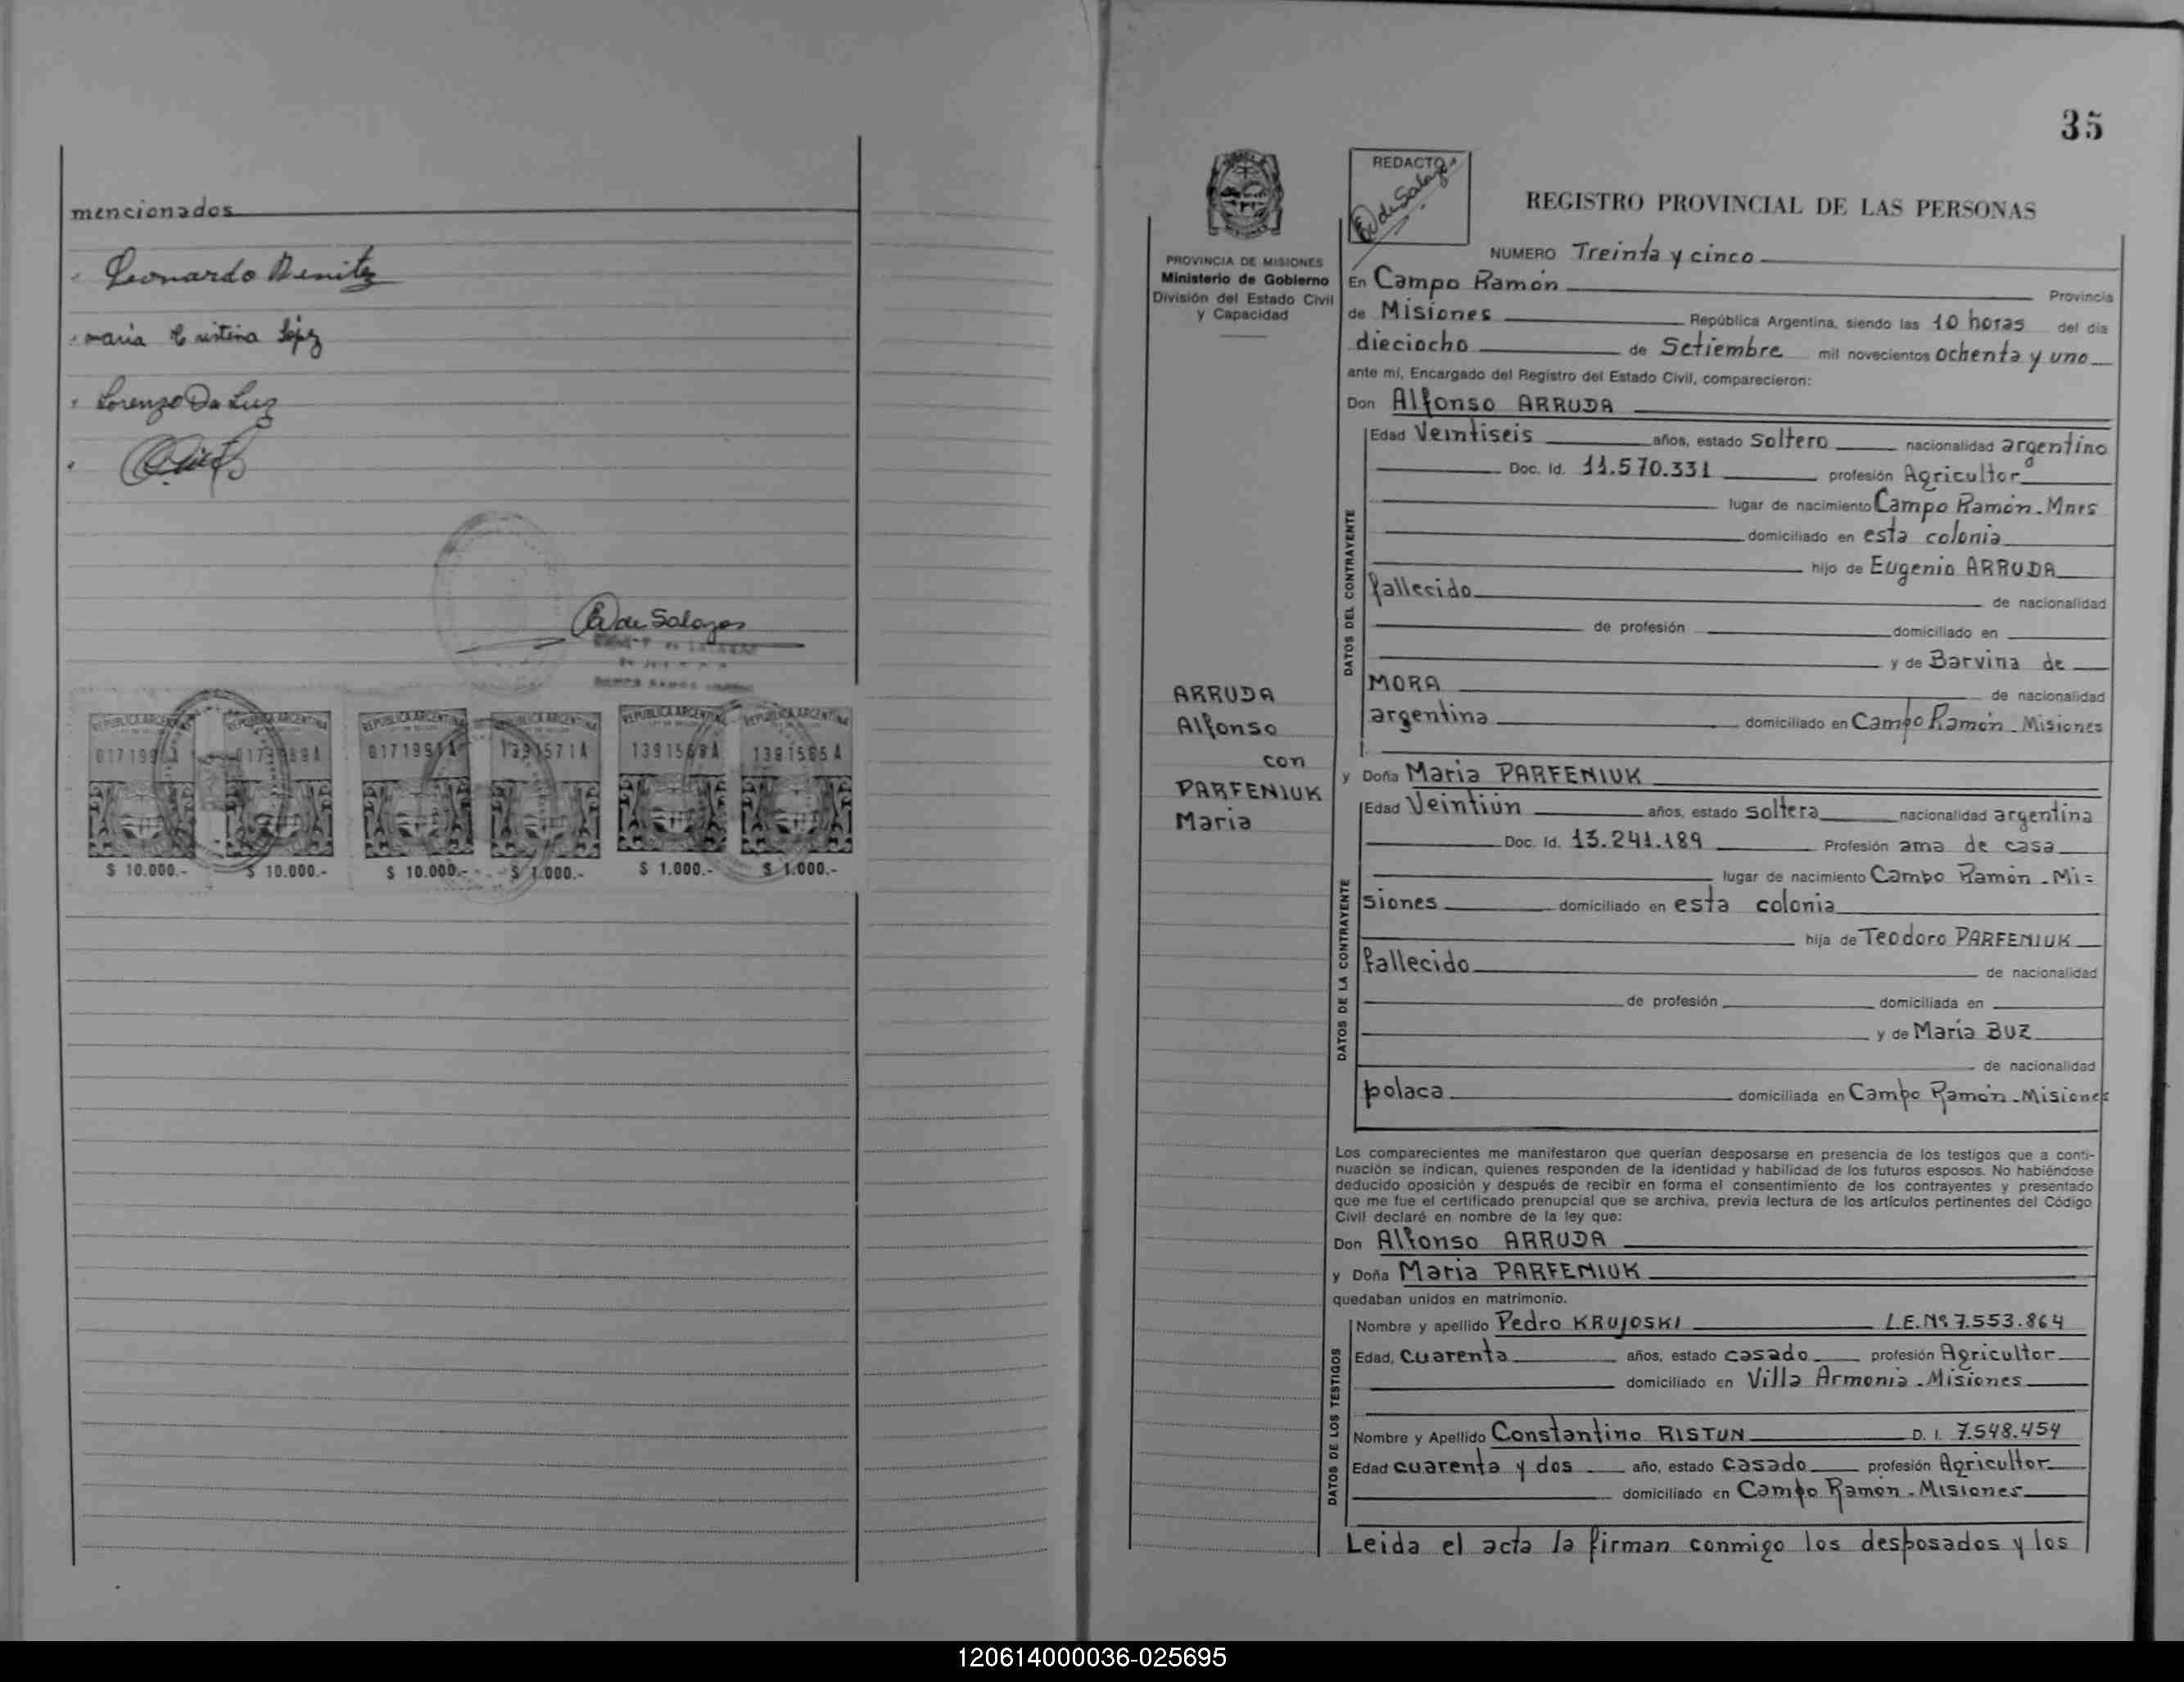 mencionados
Leonardo Benitez
maria Cristina López
Lorenzo Da Luz
E V de Salazar
REPUBLICA ARGENTINA REPUBLICA ARGENTINA REPUBLICA ARGENTINA REPUBLICA ARGENTINA REPUBLICA ARGENTINA REPUBLICA ARGENTINA
$ 10.000.- $ 10.000.- $ 10.000.- $ 1.000.- $ 1.000.- $ 1.000.-
35
REDACTO
de Salazar
REGISTRO PROVINCIAL DE LAS PERSONAS
PROVINCIA DE MISIONES
Ministerio de Gobierno
División del Estado Civil
y Capacidad
NUMERO Treinta y cinco
En Campo Ramón Provincia
de Misiones República Argentina, siendo las 10 horas del día
dieciocho de Setiembre mil novecientos ochenta y uno
ante mí, Encargado del Registro del Estado Civil, comparecieron:
Don Alfonso ARRUDA
DATOS DEL CONTRAYENTE
Edad Veintiseis años, estado Soltero nacionalidad argentino
Doc. Id. 11.570.331 profesión Agricultor
lugar de nacimiento Campo Ramón. Mnes
domiciliado en esta colonia
hijo de Eugenio ARRUDA
fallecido de nacionalidad
de profesión domiciliado en
y de Barvina de
MORA de nacionalidad
argentina domiciliado en Campo Ramón. Misiones
ARRUDA
Alfonso
con
PARFENIUK
Maria
y Doña Maria PARFENIUK
DATOS DE LA CONTRAYENTE
Edad Veintiún años, estado soltera nacionalidad argentina
Doc. Id. 13.241.189 Profesión ama de casa
lugar de nacimiento Campo Ramón - Mi=
siones domiciliado en esta colonia
hija de Teodoro PARFENIUK
fallecido de nacionalidad
de profesión domiciliada en
y de María BUZ
de nacionalidad
polaca domiciliada en Campo Ramón - Misiones
Los comparecientes me manifestaron que querían desposarse en presencia de los testigos que a conti-
nuación se indican, quienes responden de la identidad y habilidad de los futuros esposos. No habiéndose
deducido oposición y después de recibir en forma el consentimiento de los contrayentes y presentado
que me fue el certificado prenupcial que se archiva, previa lectura de los artículos pertinentes del Código
Civil declaré en nombre de la ley que:
Don Alfonso ARRUDA
y Doña Maria PARFENIUK
quedaban unidos en matrimonio.
DATOS DE LOS TESTIGOS
Nombre y apellido Pedro KRUJOSKI L.E.Nº 7.553.864
Edad, cuarenta años, estado casado profesión Agricultor
domiciliado en Villa Armonia - Misiones
Nombre y Apellido Constantino RISTUN D. I. 7.548.454
Edad cuarenta y dos año, estado casado profesión Agricultor
domiciliado en Campo Ramón - Misiones
Leida el acta la firman conmigo los desposados y los
120614000036-025695